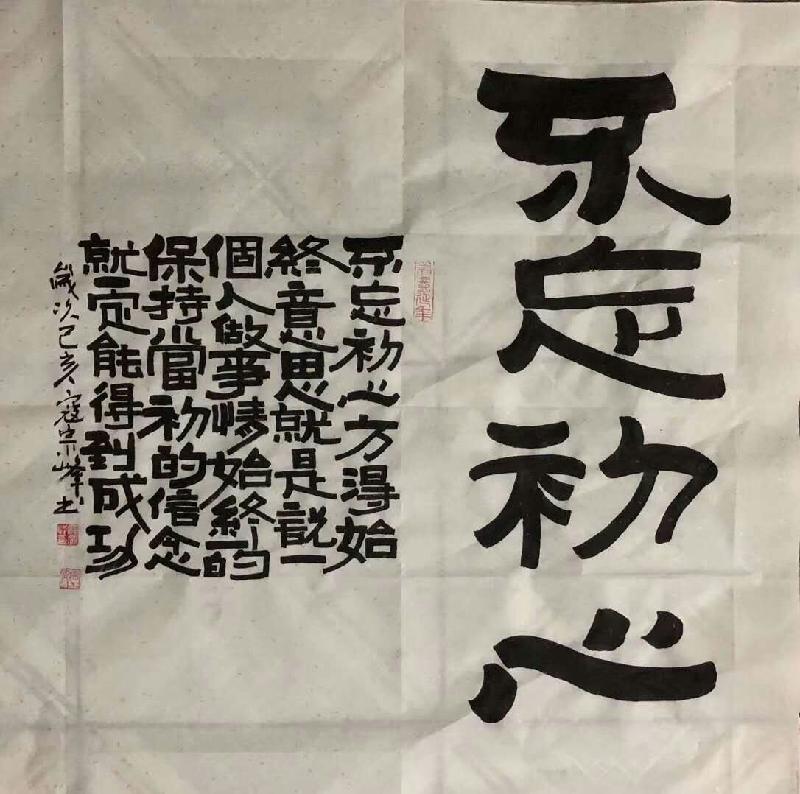 不忘初心
不忘初心方得始
終意思就是說一
個人做事情始終的
保持當初的信念
就一定能得到成功
歲次己亥寇宗峰书